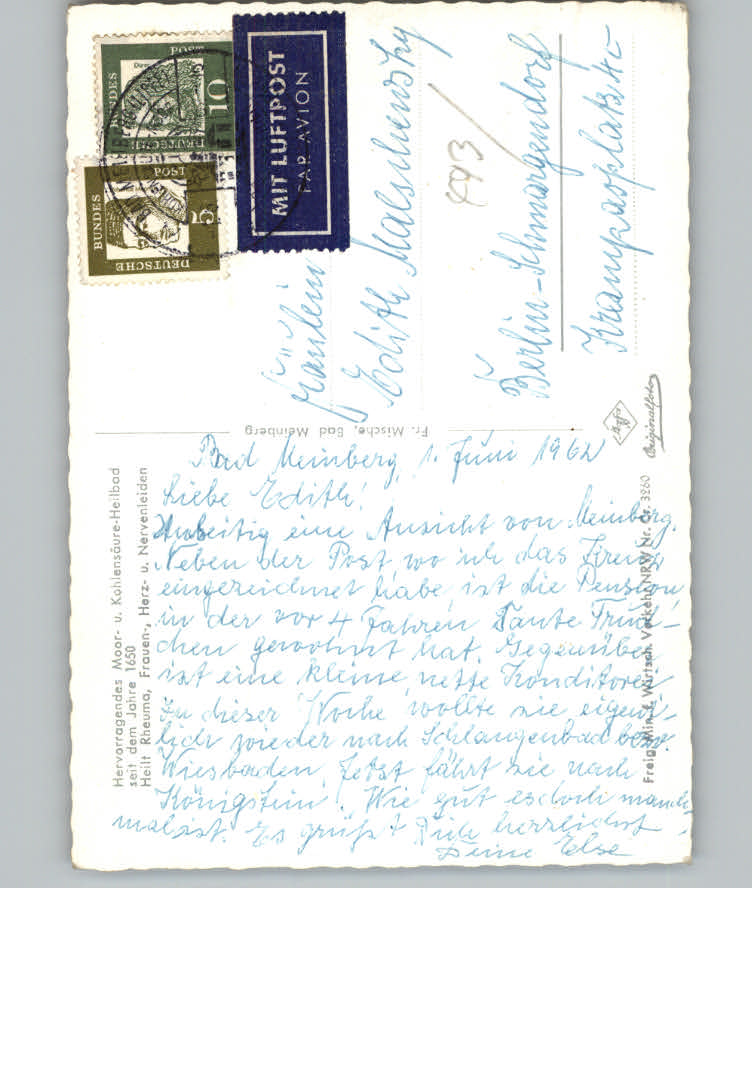 Hervorragendes Moor- u. Kohlensäure-Heilbad
seit dem Jahre 1650
Heilt Rheuma, Frauen-, Herz- u. Nervenleiden
Bad Meinberg, 1. Juni 1962
Liebe Edith!
Umseitig eine Ansicht von Meinberg.
Neben der Post, wo ich das Kreuz
eingezeichnet habe, ist die Pension
in der vor 4 Jahren Tante Trud-
chen gewohnt hat. Gegenüber
ist eine kleine nette Konditorei
In dieser Woche wollte sie eigent-
lich wieder nach Schlangenbad bzw.
Wiesbaden. Jetzt fährt sie nach
Königstein. Wie gut es doch manch-
mal ist. Es grüßt Dich herzlichst
Deine Else
Freig. Min. f. Wirtsch. Verkehr NRW Nr. 3260
Fr. Mische, Bad Meinberg
Agfa
Originalfoto
MIT LUFTPOST
PAR AVION
DEUTSCHE
BUNDES
POST
10
DEUTSCHE
BUNDES
POST
5
Fräulein
Edith
493/
Berlin-Schmargendorf